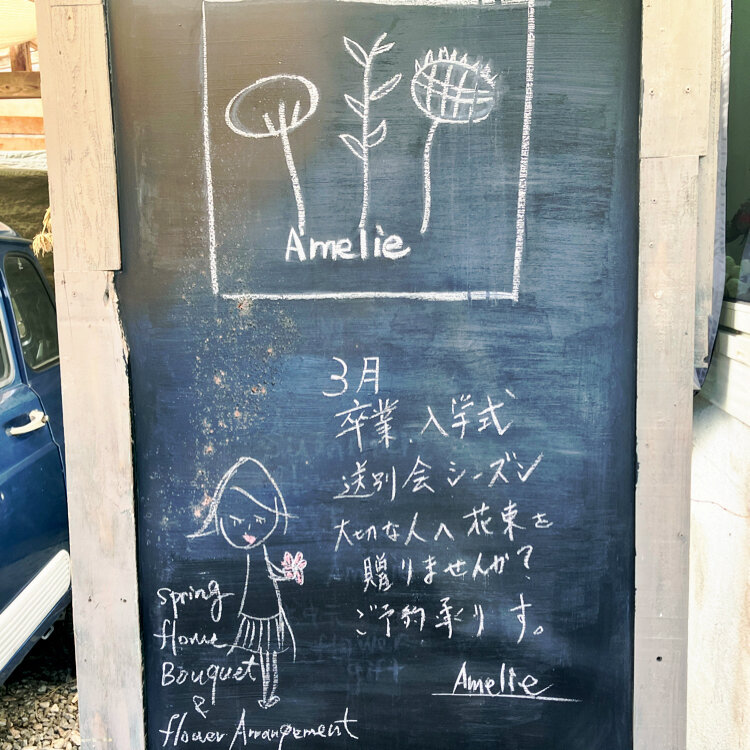 Amelie
3月
卒業、入学式
送別会シーズン
大切な人へ花束を
贈りませんか?
ご予約承りす。
Amelie
spring
flowe
Bouquet
&
flower Arrangement